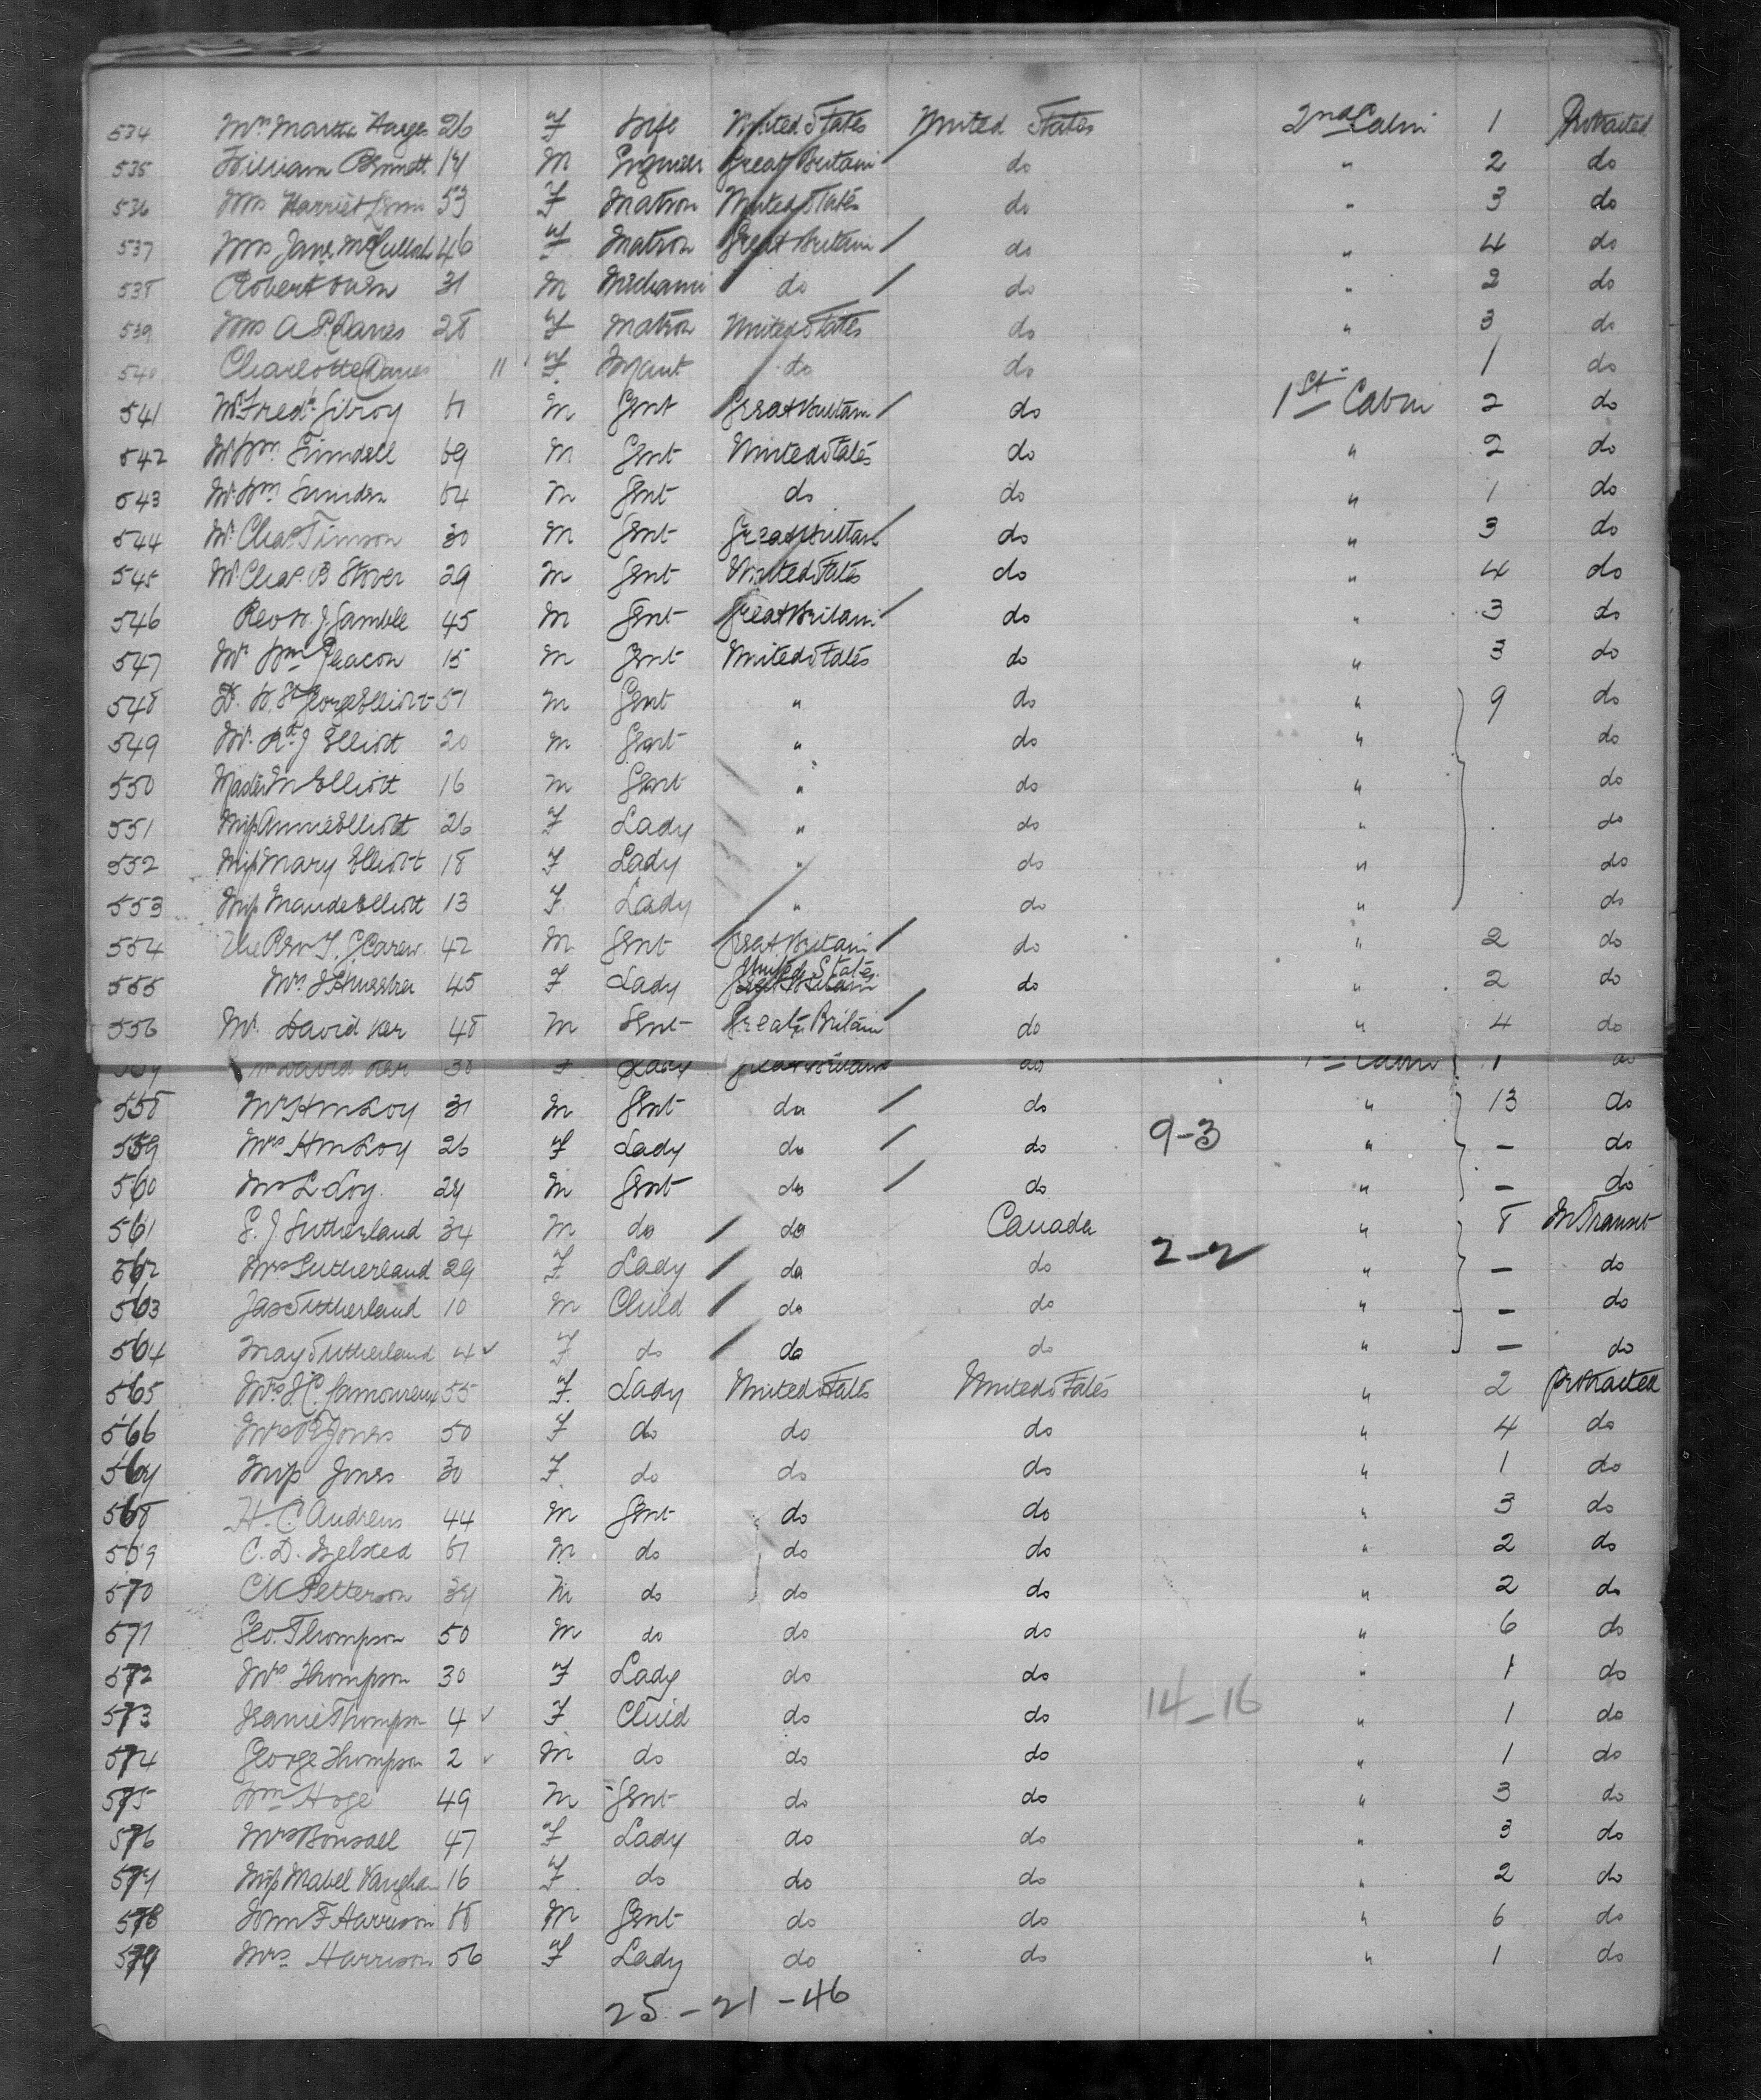 534 Mrs Martha Harges 26 F Wife United States United States 2nd Cabin 1 Protracted
535 William Bennett M Engineer Great Britain do " 2 do
536 Mrs Harriet 53 F Matron United States do " 3 do
537 Mrs Jane McCullah 46 F Matron Great Britain do " 4 do
538 Robert Owen 31 M Mechanic do do " 2 do
539 Mrs A P Davies 28 F Matron United States do " 3 do
540 Charlotte Davies 11 F Infant do do " 1 do
541 Mr Fredk Gilroy M Gent Great Britain do 1st Cabin 2 do
542 Mr Wm 69 M Gent United States do " 2 do
543 Mr Wm 64 M Gent do do " 1 do
544 Mr Chas Timson 30 M Gent Great Britain do " 3 do
545 Mr Chas. B Stover 29 M Gent United States do " 4 do
546 Rev W. J. Gamble 45 M Gent Great Britain do " 3 do
547 Mr Wm Deacon 15 M Gent United States do " 3 do
548 Dr. W. St George Elliott 51 M Gent " do " 9 do
549 Mr. Rd. J Elliott 20 M Gent " do " do
550 Master M Elliott 16 M Gent " do " do
551 Miss Annie Elliott 26 F Lady " do " do
552 Miss Mary Elliott 18 F Lady " do " do
553 Miss Maude Elliott 13 F Lady " do " do
554 The Rev T. P Carew 42 M Gent Great Britain do " 2 do
555 Mrs 45 F Lady United States Great Britain do " 2 do
556 Mr. David Ker 48 M Gent Great Britain do " 4 do
Mrs David Ker 38 F Lady Great Britain do 1st Cabin 1 do
558 Mr H M Loy 31 M Gent do do " 13 do
559 Mrs H M Loy 26 F Lady do do 9-3 " — do
560 L Loy M Gent do do " — do
561 G. J. Sutherland 34 M do do Canada " 8 In Transit
562 Mrs Sutherland 29 F Lady do do 2-2 " — do
563 Jas Sutherland 10 M Child do do " — do
564 May Sutherland 4 F do do do " — do
565 Mrs J. C. Lamoureux 55 F Lady United States United States " 2 Protracted
566 Mrs Jones 50 F do do do " 4 do
567 Miss Jones 30 F do do do " 1 do
568 H. C. Andrews 44 M Gent do do " 3 do
569 C. D. M do do do " 2 do
570 C M Petterson M do do do " 2 do
571 Geo. Thompson 50 M do do do " 6 do
572 Mrs Thompson 30 F Lady do do " 1 do
573 Jeanie Thompson 4 F Child do do 14-16 " 1 do
574 George Thompson 2 M do do do " 1 do
575 Wm Hoge 49 M Gent do do " 3 do
576 Mrs Bonsall 47 F Lady do do " 3 do
577 Miss Mabel Vaughan 16 F do do do " 2 do
578 John F Harrison M Gent do do " 6 do
579 Mrs Harrison 56 F Lady do do " 1 do
25 - 21 - 46